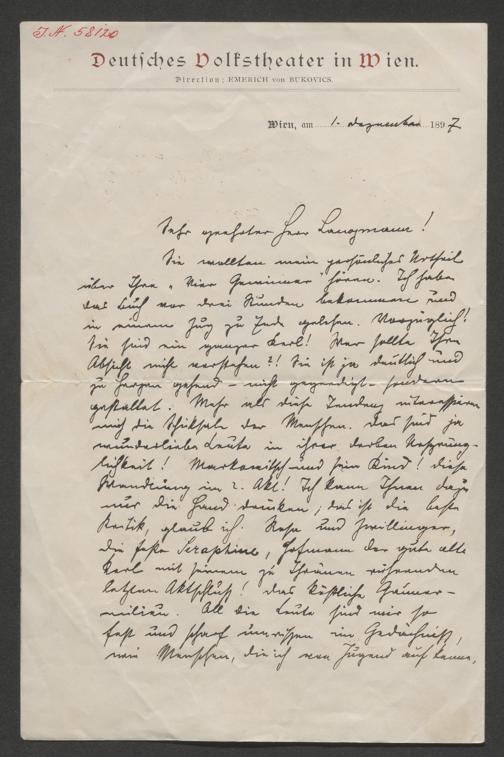 J. N. 58120
Deutsches Volkstheater in Wien.
Direction: EMERICH von BUKOVICS.
Wien, am 1. dezember 1897
Sehr geehrter Herr Langmann!
Sie wollten mein persönliches Urtheil
über Ihre „Vier Gewinner" hören. Ich habe
das Buch vor drei Stunden bekommen und
in einem Zug zu Ende gelesen. Vorzüglich!
Sie sind ein ganzer Kerl! Wer sollte Ihre
Absicht nicht verstehen?! Sie ist ja deutlich und
zu Herzen gehend – nicht gepredigt – sondern
gestaltet. Mehr als diese Tendenz interessieren
mich die Schiksale der Menschen. Das sind ja
wunderliebe Leute in ihrer derben Ursprüng-
lichkeit! Markowitsch und sein Kind! diese
Wandlung im 2. Akt! Ich kann Ihnen dazu
nur die Hand drücken, das ist die beste
Kritik, glaub ich. Resa und Zwillinger,
die fesche Seraphine, Hofmann der gute alte
Kerl mit seinem zu Thränen rührenden
letzten Aktschluß! das köstliche Gauner-
milieu. All die Leute sind mir so
fest und scharf umrissen im Gedächtniß,
wie Menschen, die ich von Jugend auf kenne,